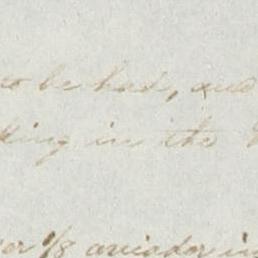 to be had, and
king in the
er 1/8 aviador in